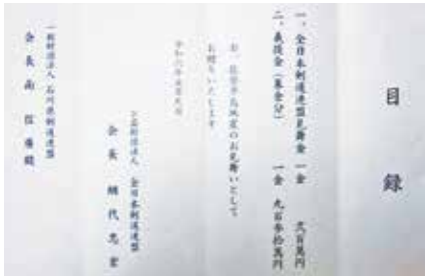 目録
一、全日本剣道連盟見舞金 一金 百萬円
二、義援金(募金分) 一金 九百参拾萬円
右、能登半島地震のお見舞いとして
お贈りいたします
令和六年
公益財団法人 全日本剣道連盟
会長 網代忠宏
一般財団法人 石川県剣道連盟
会長 南 信廣 殿